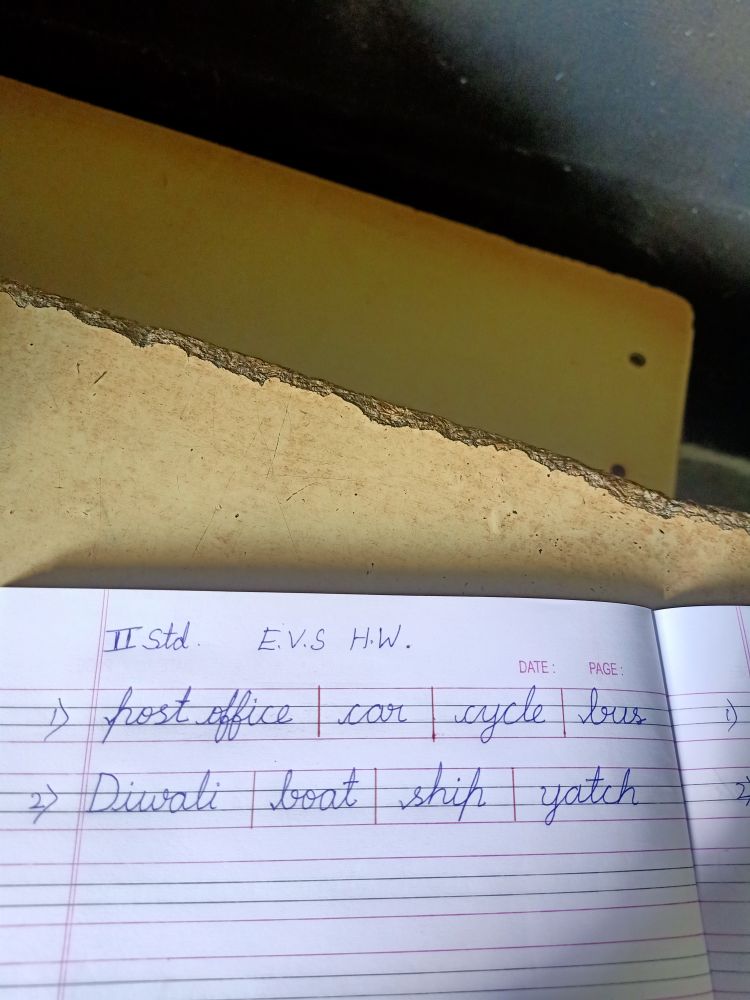 II Std. E.V.S H.W.
DATE: PAGE:
1) post office | car | cycle | bus 1)
2) Diwali | boat | ship | yatch 2)